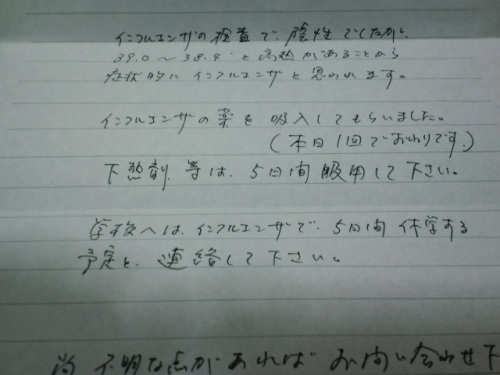 インフルエンザの検査で、陰性でしたが、
39.0～38.8°と高熱があることから
症状的にインフルエンザと思われます。
インフルエンザの薬を吸入してもらいました。
(本日1回でおわりです。)
下熱剤等は、5日間服用して下さい。
学校へは、インフルエンザで、5日間休学する
予定と、連絡して下さい。
尚不明な点があればお問い合わせ下